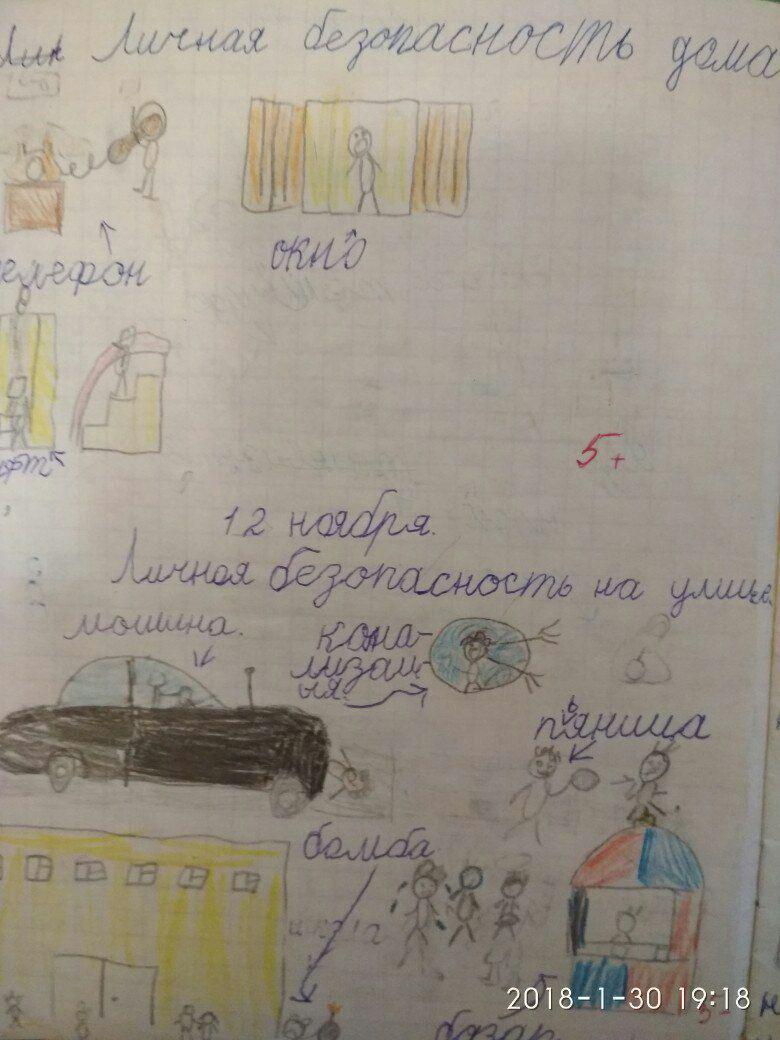 Личная безопасность дома
окно
елефон
5+
12 ноября.
Личная безопасность на улице.
мошина.
кона-
лизаци-
ия.
пьяница
бомба
школа
базар
5-
2018-1-30 19:18